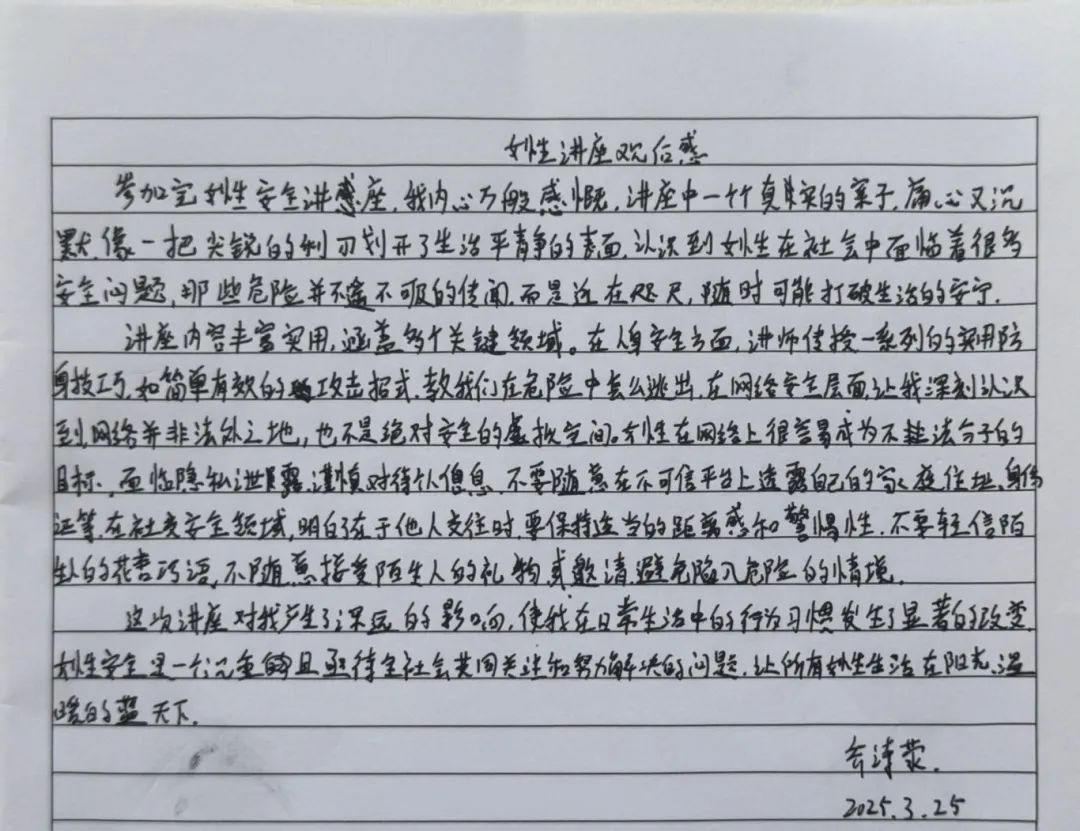 女性讲座观后感
参加完女性安全讲座,我内心万般感慨,讲座中一个个真实的案子,痛心又沉
默,像一把尖锐的利刃划开了生活平静的表面,认识到女性在社会中面临着很多
安全问题,那些危险并不遥不可及的传闻,而是近在咫尺,随时可能打破生活的安宁.
讲座内容丰富实用,涵盖多个关键领域。在人身安全方面,讲师传授一系列的实用防
身技巧,如简单有效的攻击招式,教我们在危险中怎么逃出,在网络安全层面,让我深刻认识
到网络并非法外之地,也不是绝对安全的虚拟空间。女性在网络上很容易成为不法分子的
目标,面临隐私泄露,谨慎对待个人信息,不要随意在不可信平台上透露自己的家庭住址,身份
证等,在社交安全领域,明白了在于他人交往时,要保持适当的距离感和警惕性,不要轻信陌
生人的花言巧语,不随意接受陌生人的礼物或邀请,避免陷入危险的情境,
这次讲座对我产生了深远的影响,使我在日常生活中的行为习惯发生了显著的改变,
女性安全是一个沉重的且亟待全社会共同关注和努力解决的问题,让所有女性生活在阳光,温
暖的蓝天下.
2025.3.25